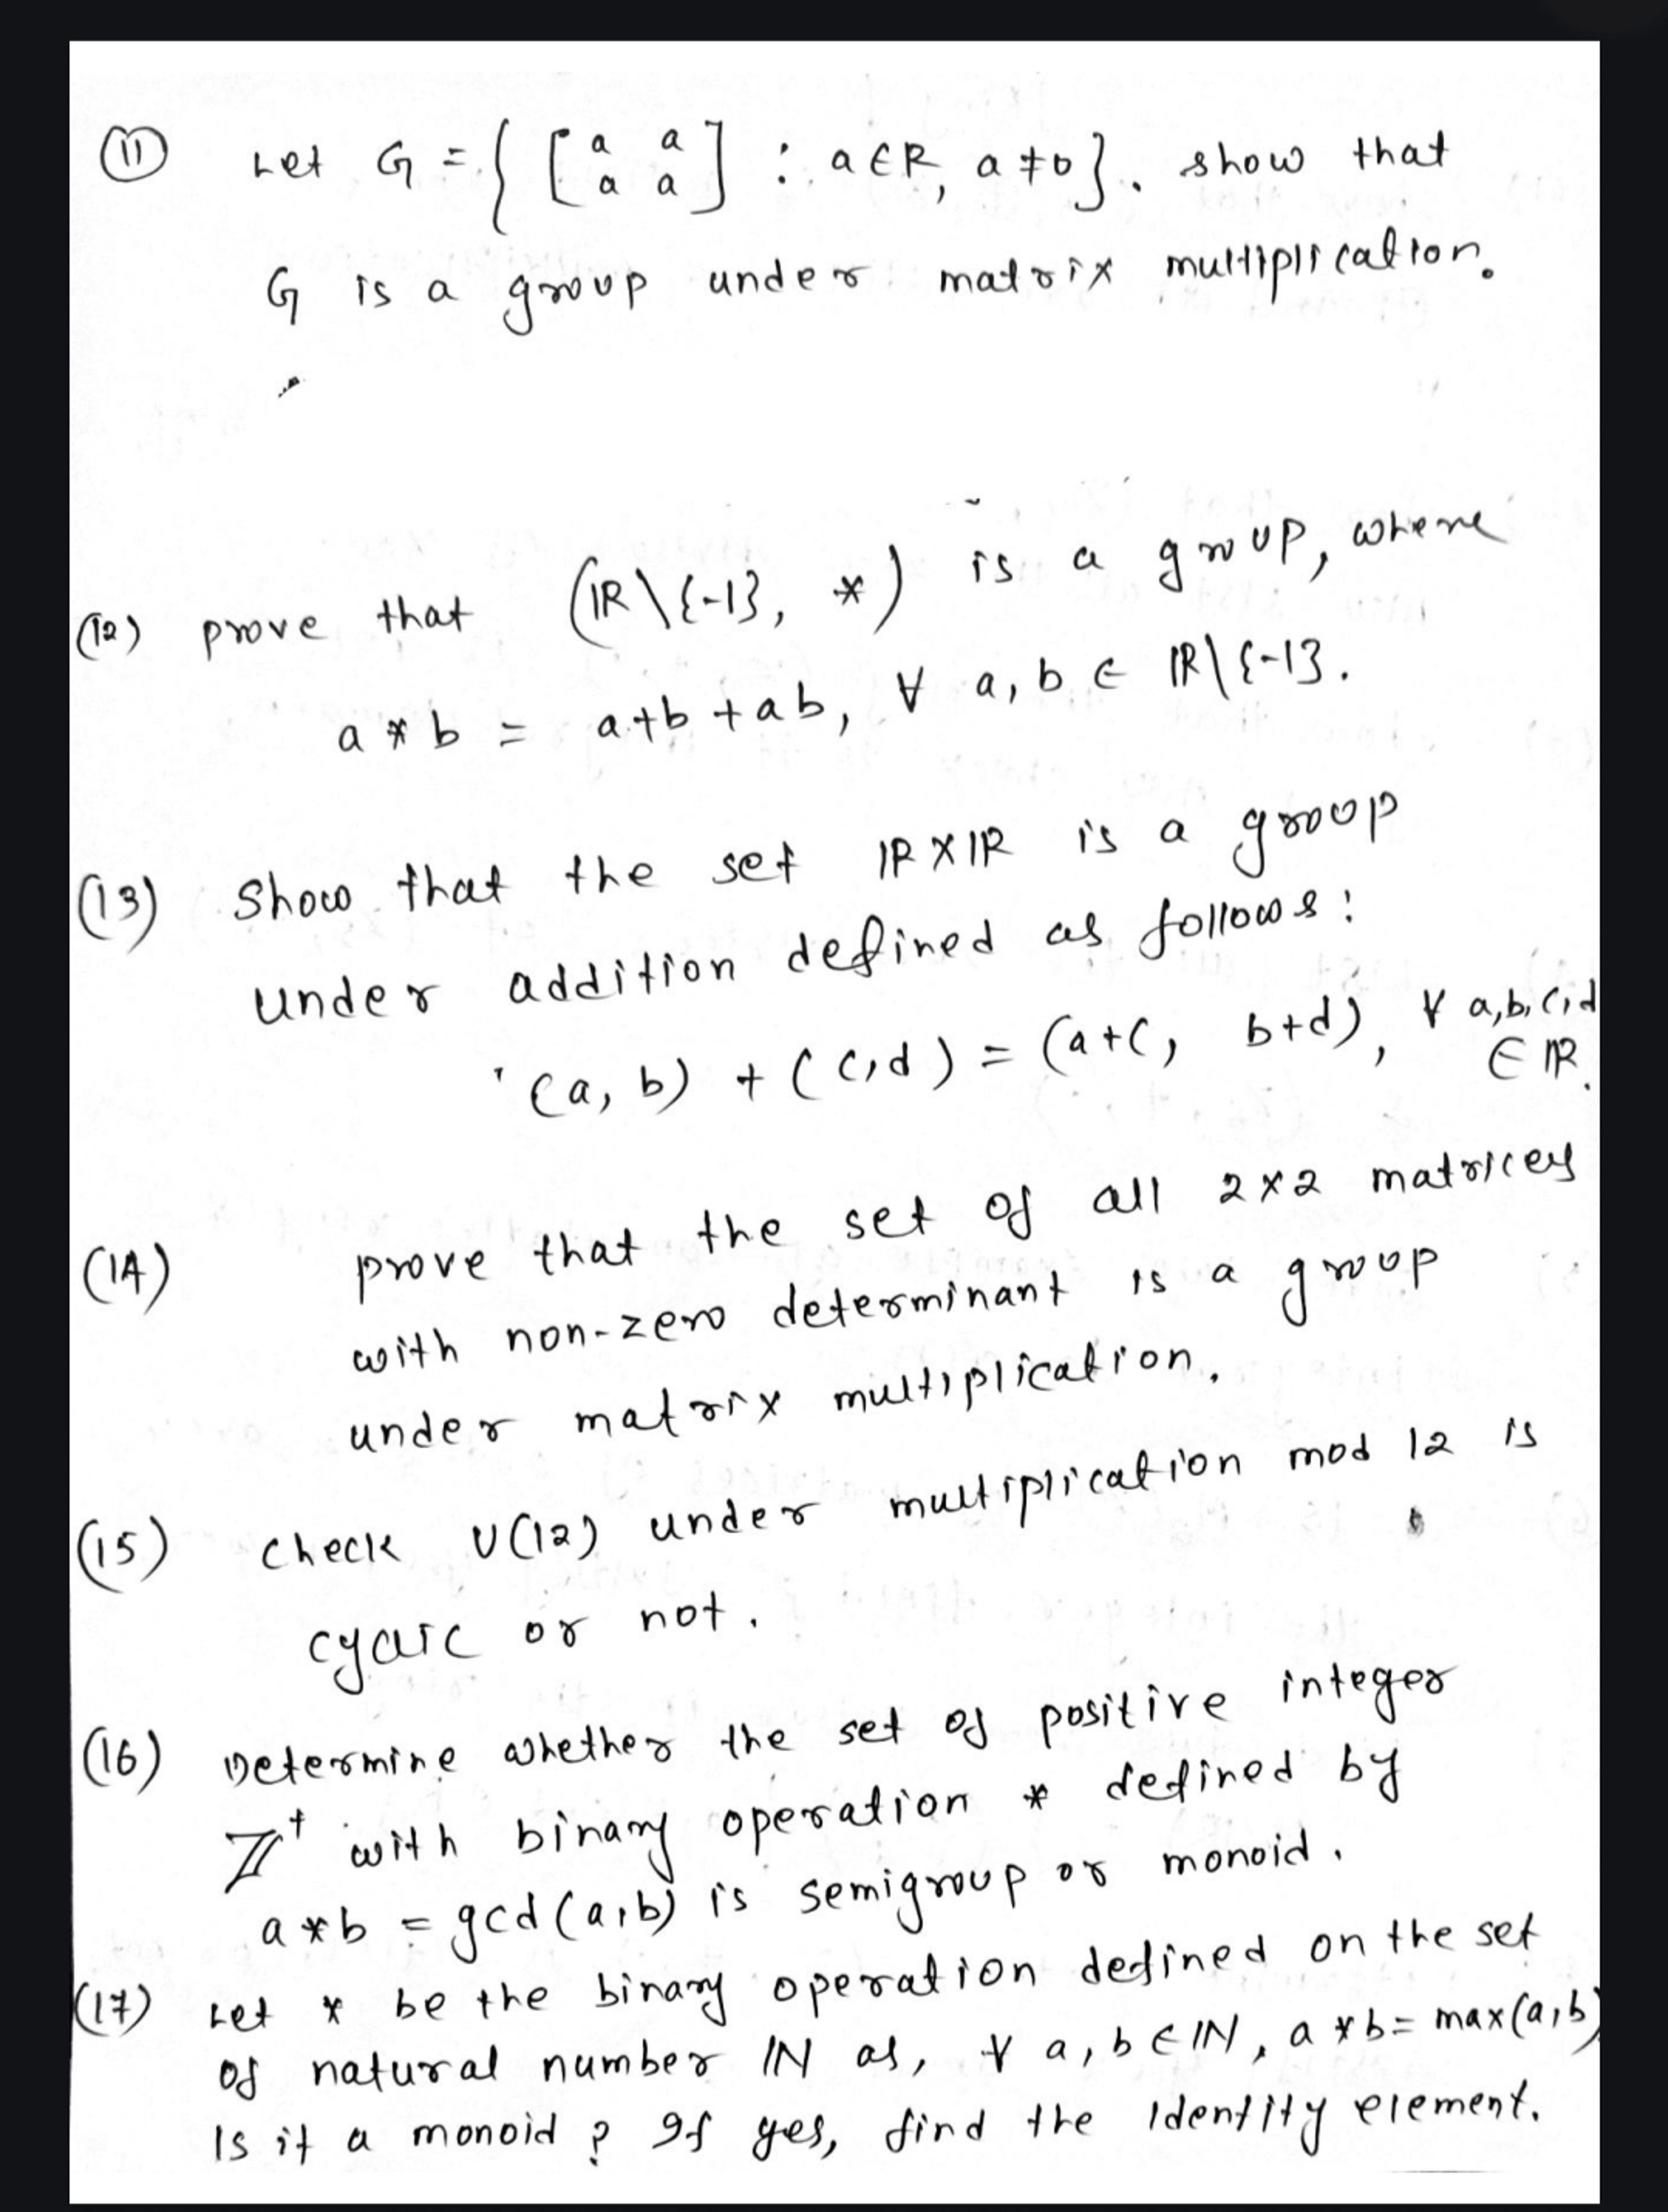 (11) Let G = { [a a a a] : a ∈ R, a ≠ 0 }. show that
G is a group under matrix multiplication.
(12) prove that (ℝ \ {-1}, *) is a group, where
a * b = a+b+ab, ∀ a, b ∈ ℝ \ {-1}.
(13) Show that the set ℝ × ℝ is a group
under addition defined as follows:
(a, b) + (c, d) = (a+c, b+d), ∀ a,b,c,d
∈ ℝ.
(14) prove that the set of all 2×2 matrices
with non-zero determinant is a group
under matrix multiplication.
(15) Check U(12) under multiplication mod 12 is
cyclic or not.
(16) Determine whether the set of positive integer
ℤ⁺ with binary operation * defined by
a * b = gcd(a, b) is semigroup or monoid.
(17) Let * be the binary operation defined on the set
of natural number ℕ as, ∀ a, b ∈ ℕ, a * b = max(a, b)
Is it a monoid? If yes, find the identity element.